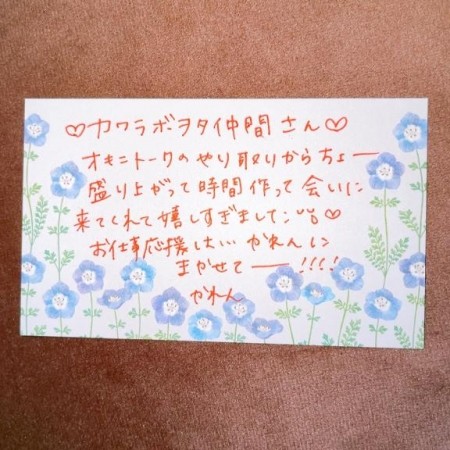 ♡カワラボヲタ仲間さん♡
オキニトークのやり取りからちょー
盛り上がって時間作って会いに
来てくれて嬉しすぎました
お仕事応援は…かれんに
まかせてー!!!!
かれん